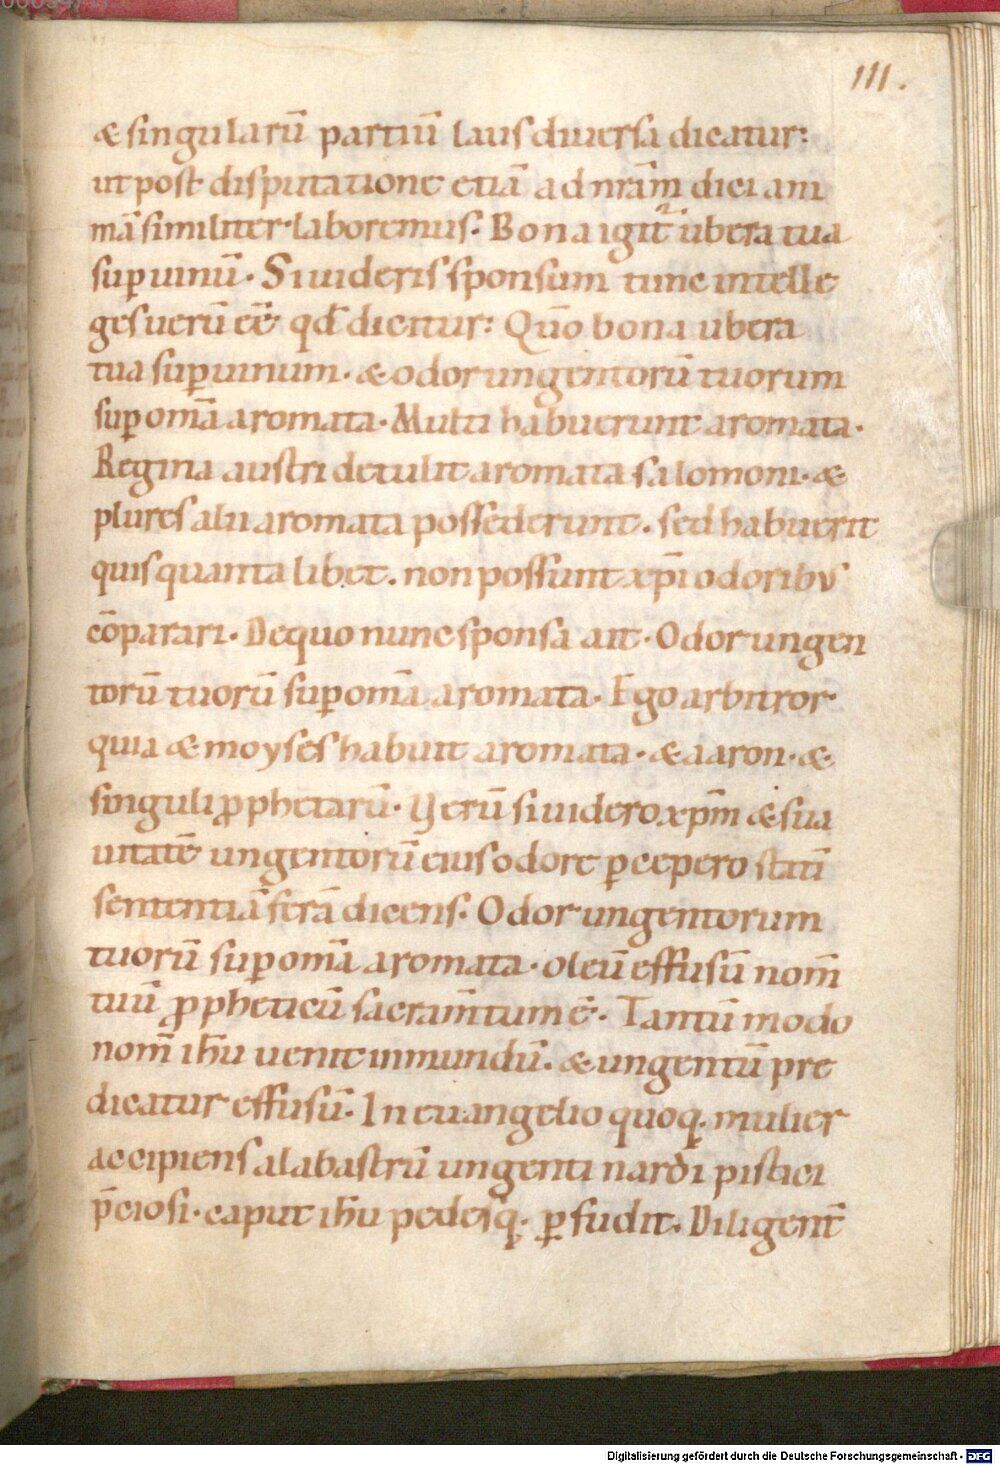 111.
& singularū partiū laus diuersa dicatur:
ut post disputatione etiā ad nr̄ām dici ani
mā similiter laboremus. Bona igit̄ ubera tua
sup uinū. Si uideris sponsum tunc intelle
ges uerū eē qd̄ dicitur: Qūo bona ubera
tua sup uinum. & odor ungentorū tuorum
sup omā aromata. Multi habuerunt aromata.
Regina austri detulit aromata salomoni. &
plures alii aromata possederunt. sed habuerit
quis quanta libet. non possunt xp̄i odoribus
cōparari. De quo nunc sponsa ait. Odor ungen
torū tuorū sup omā aromata. Ego arbitror
quia & moyses habuit aromata. & aaron. &
singuli pphetarū. Uerū si uidero xp̄m & sua
uitatē ungentorū eius odore pcepero statī
sententiā ferā dicens. Odor ungentorum
tuorū sup omā aromata. oleū effusū nom̄
tuū ppheticū sacram̄tum ē. Tantū modo
nom̄ ih̄u uenit in mundū. & ungentū pre
dicatur effusū. In euangelio quoq. mulier
accipiens alabastrū ungenti nardi pistici
p̄ciosi. caput ih̄u pedesq. pfudit. Diligent̄
Digitalisierung gefördert durch die Deutsche Forschungsgemeinschaft - DFG